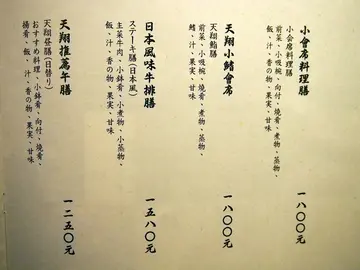 小會席料理膳
小会席料理膳
前菜、小吸椀、向付、燒肴、煮物、蒸物、
飯、汁、香の物、果実、甘味
一八〇〇元
天翔小鰭會席
天翔鮨膳
前菜、小吸椀、燒肴、煮物、蒸物、
鰭、汁、果実、甘味
一八〇〇元
日本風味牛排膳
ステーキ膳(日本風)
主菜牛肉、小鉢肴、小煮物、小蒸物、
飯、汁、香の物、果実、甘味
一五八〇元
天翔推薦午膳
天翔昼膳(日替り)
おすすめ料理、小鉢肴、向付、燒肴、
揚肴、飯、汁、香の物、果実、甘味
一二五〇元